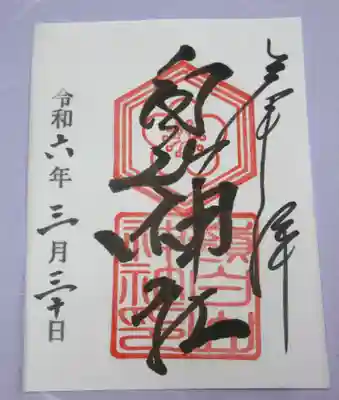 奉拝
白山神社
令和六年 三月三十日